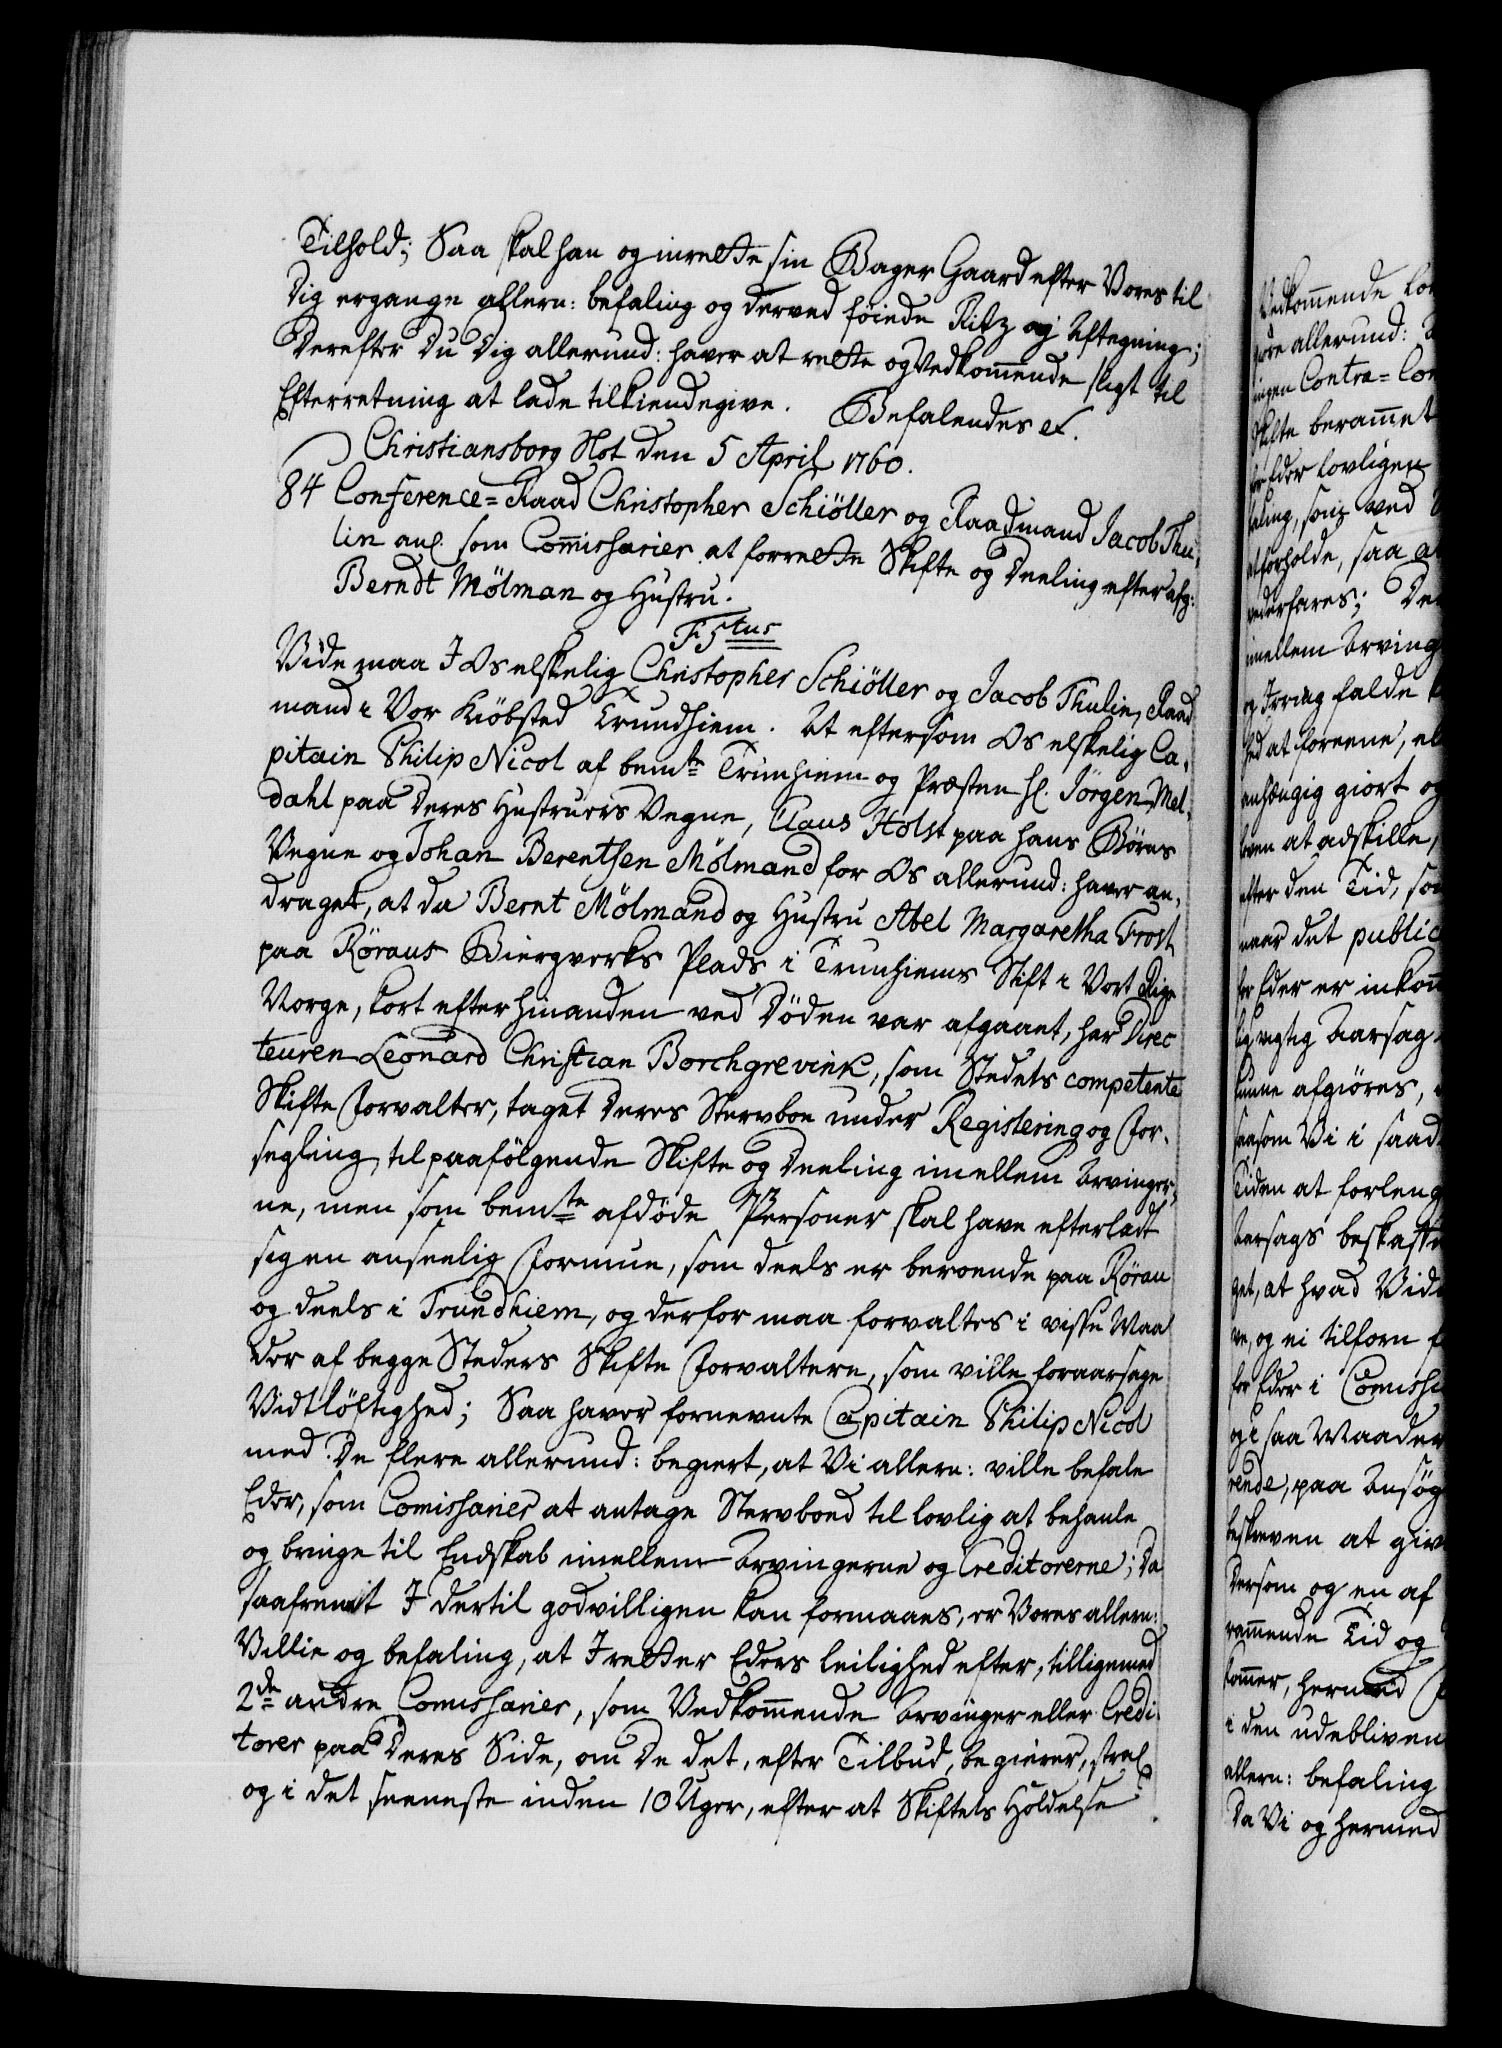 Tilhold; Saa skal han og inrette sin Bager Gaard efter Vores til
Dig ergangne allern: befaling og derved föiede Ritz og Aftegning;
Derefter Du Dig allerund: haver at rette og Vedkom̄ende sligt til
Efterretning at lade tilkiendegive. Befalendes etc.
Christiansborg Slot den 5 April 1760.
84 Conference=Raad Christopher Schiöller og Raadmand Jacob Thu-
lin anl. som Com̄issarier at forrette Skifte og Deeling efter afg:
Berndt Mölman og Hustru.
F 5tus
Viide maa I Os elskelig Christopher Schiöller og Jacob Thulin, Raad
mand i Vor Kiöbsted Trundhiem. At eftersom Os elskelig Ca-
pitain Philip Nicol af bemte Trunhiem og Præsten Hr. Jörgen Mel-
dahl paa Deres Hustruers Vegne, Claus Holst paa hans Börns
Vegne og Johan Berentsen Mölmand for Os allerund: haver an-
draget, at da Bernt Mölmand og Hustru Abel Margaretha Frost
paa Röraus Biergverks Plads i Trunhiems Stift i Vort Rige
Norge, kort efter hinanden ved Döden var afgaaet, har Direc
teuren Leonard Christian Borchgrevink, som Stedets competente
Skifte Forvalter, taget Deres Stervboe under Registering og For-
segling til paafölgende Skifte og Deeling imellem Arvinger-
ne, men som bemte afdöde Personer skal have efterladt
sig en anseelig Formue, som deels er beroende paa Rörau
og deels i Trundhiem, og derfor maa forvaltes i visse Maa
der af begge Steders Skifte Forvaltere, som ville foraarsage
Vidtlöftighed; Saa haver fornevnte Capitain Philip Nicol
med De flere allerund: begiert, at Vi allern: ville befale
Eder, som Com̄issarier at antage Stervboed til lovlig at behanle
og bringe til Endskab imellem Arvingerne og Creditorerne; Da
saafremt I dertil godvilligen kan formaaes, er Vores allern:
Villie og befaling, at I retter Eders leilighed efter, tilligemed
2de andre Com̄issarier, som Vedkom̄ende Arvinger eller Credi
torer paa Deres Side, om De det, efter Tilbud, begierer, strax
og i det seeneste inden 10 Uger, efter at Skiftets Holdelse
Vedkom̄ende
allerund:
ingen Contra=
Skifte beram̄et
for Eder lovligen
som ved
forholde, saa
vederfares;
imellem Arving
og Irring falde
at foreene,
anhængig giort og
at adskille,
efter den Tid, som
naar det public
for Eder er inkom̄
vigtig Aarsag
kunne afgiöres,
saasom Vi i saad
Tiden at forleng
Aarsags beskaff
at hvad Vid
og ei tilforn
for Eder i Com̄iss
og i saa Maader
paa Ansög
beskreven at giv
Dersom og en af
ram̄ende Tid og
kom̄er, hermed
i den udebliven
allern: befaling
Da Vi og hermed